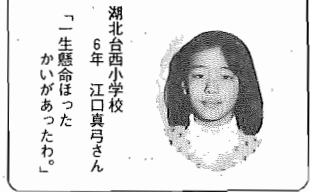 湖北台西小学校
6年 江口真弓さん
「一生懸命ほった
かいがあったわ。」